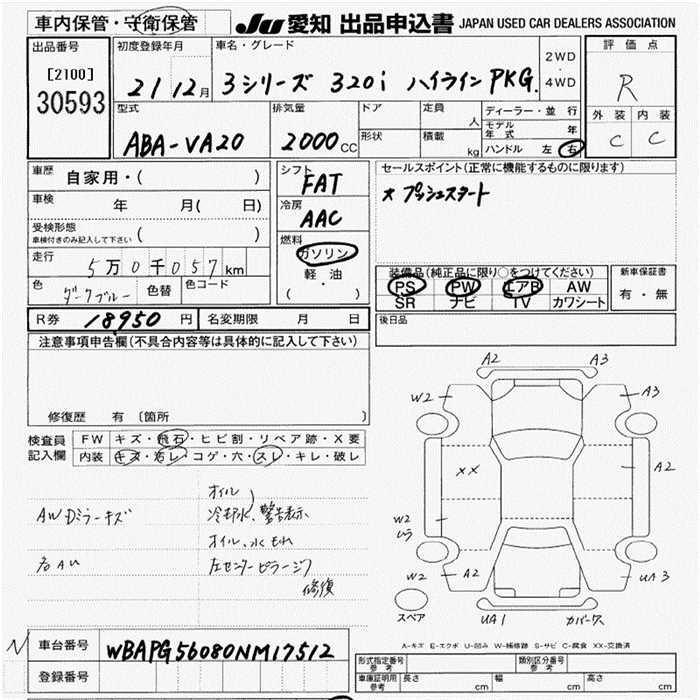 車内保管・守衛保管
JU 愛知 出品申込書 JAPAN USED CAR DEALERS ASSOCIATION
出品番号
[2100]
30593
初度登録年月
21 12月
車名・グレード
3シリーズ 320i ハイラインPKG.
2WD
・
4WD
評価点
R
外装 内装
C C
型式
ABA-VA20
排気量
2000CC
ドア
形状
定員
人
積載
kg
ディーラー・並行
モデル年式 年
ハンドル 左 右
車歴 自家用・( )
車検 年 月( 日)
受検形態
車検付きのみ記入して下さい ( )
走行 5万0千057km
色 ダークブルー 色替 色コード
シフト
FAT
冷房
AAC
燃料
ガソリン
軽・油
( ・ )
セールスポイント(正常に機能するものに限ります)
* プッシュスタート
装備品(純正品に限り○をつけてください)
PS PW エアB AW
SR ナビ TV カワシート
新車保証書
有・無
R券 18950円 名変期限 月 日
後日品
注意事項申告欄(不具合内容等は具体的に記入して下さい)
修復歴 有〔箇所 〕
検査員
記入欄
FW キズ・飛石・ヒビ割・リペア跡・X要
内装 キズ・汚レ・コゲ・穴・スレ・キレ・破レ
AWDミラーキズ
オイル
冷却水、警告表示
オイル、水もれ
左センターピラージワ
修復
A2 A3
W2 A3
XX A2
W2
ムラ
W2 A2 UA3
スペア
UA1 カバーワレ
A-キズ E-エクボ U-凹み W-補修跡 S-サビ C-腐食 XX-交換済
N
車台番号 WBAPG56080NM17512
登録番号
形式指定番号
参考
類別区分番号
参考
車庫証明用
参考
長さ cm 幅 cm 高さ cm